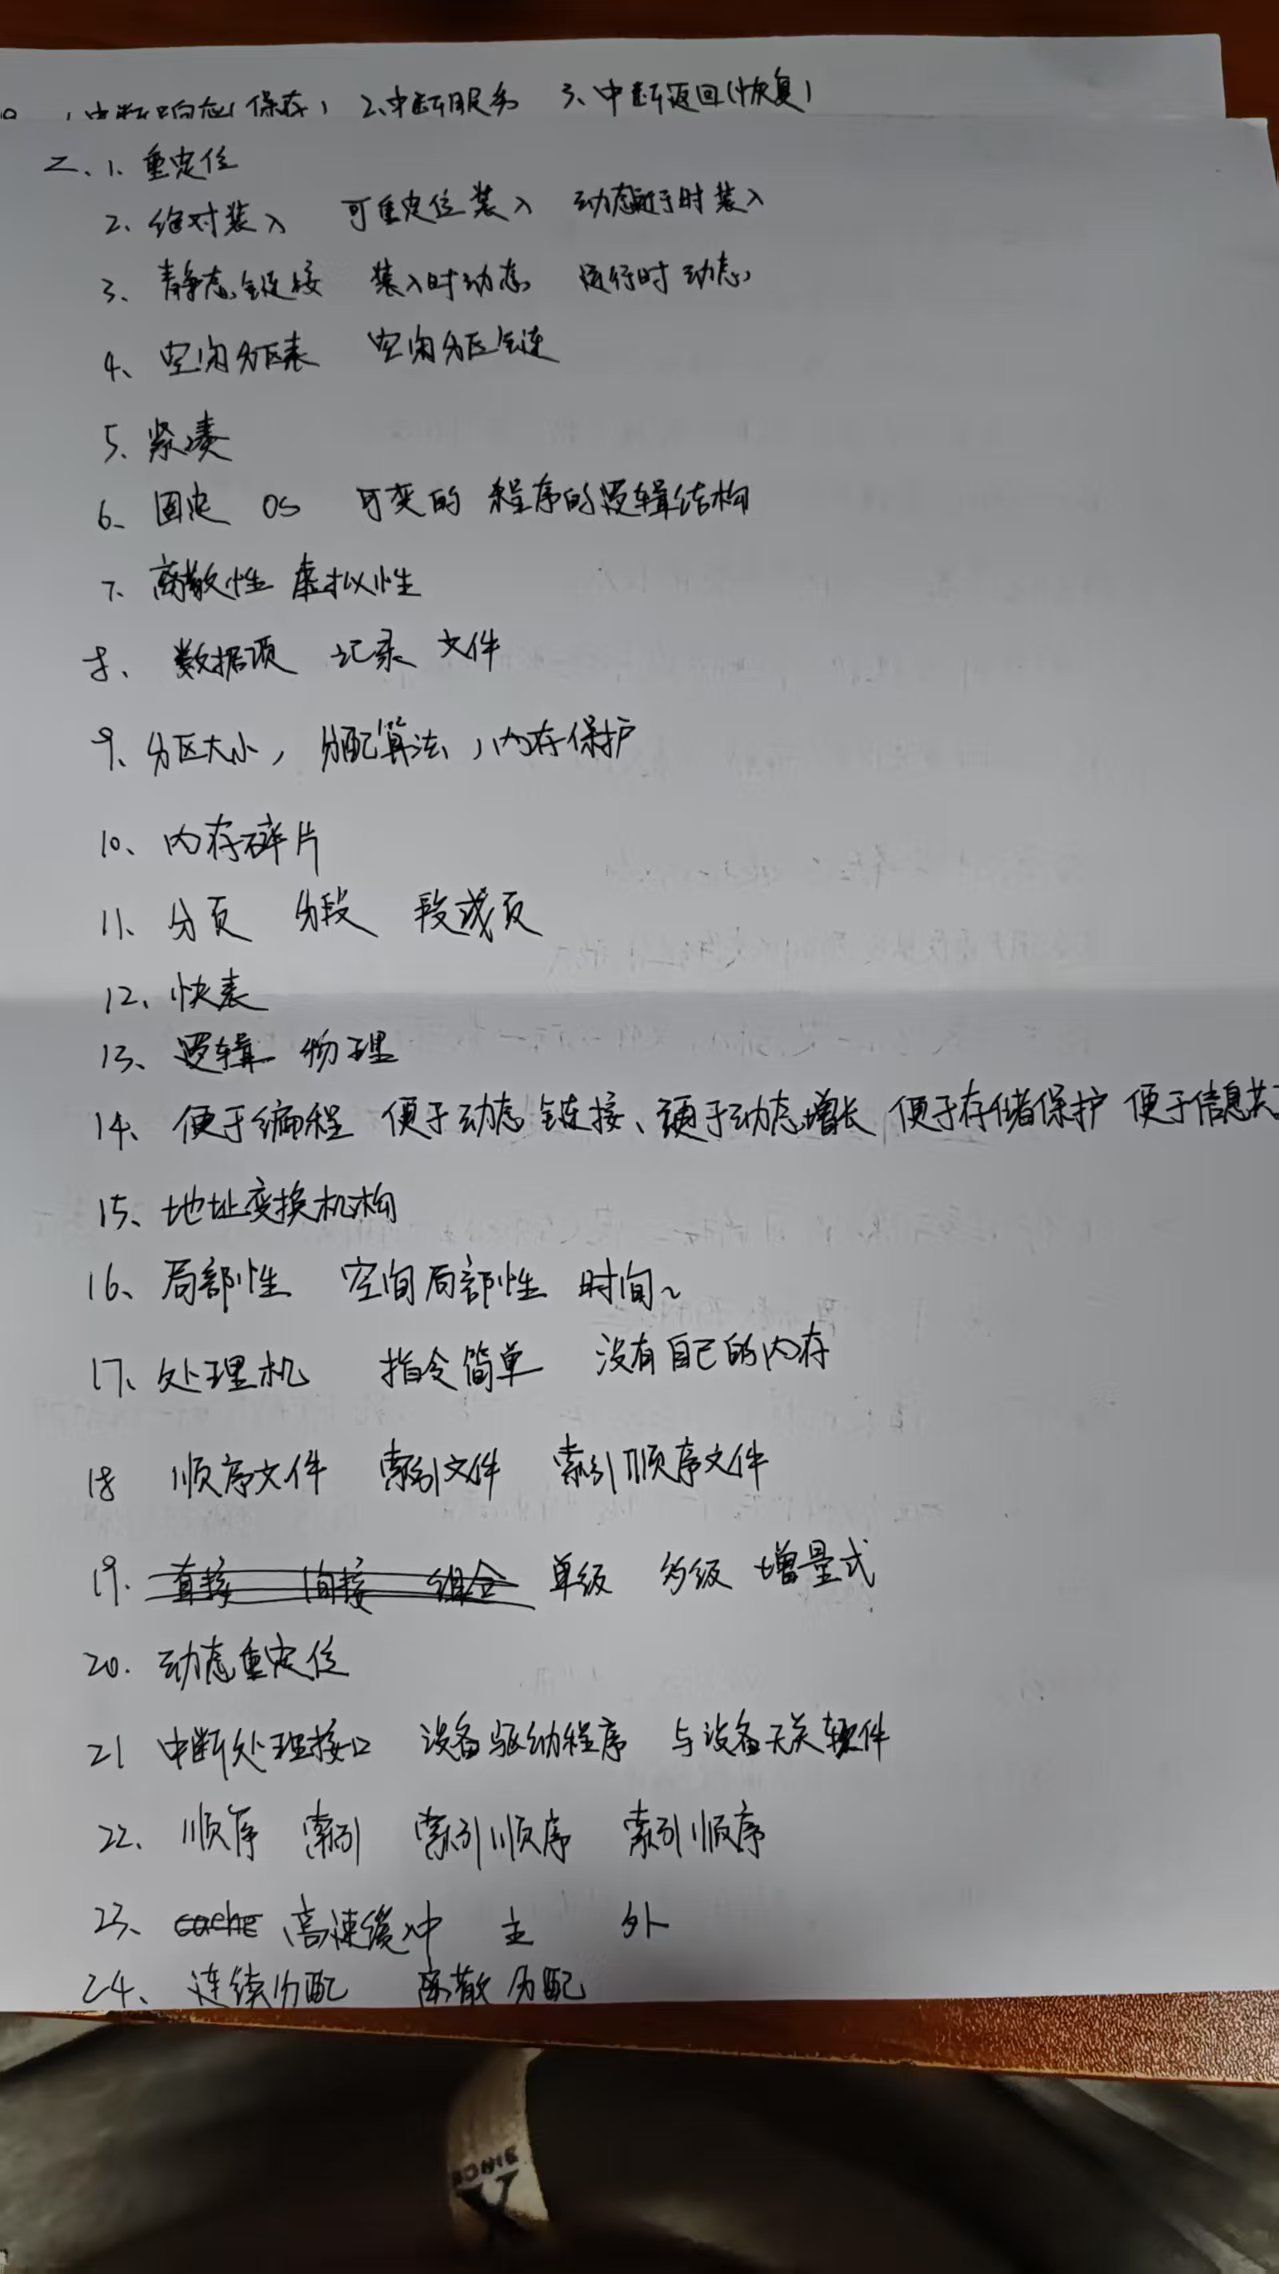 1、中断响应(保存) 2、中断服务 3、中断返回(恢复)
二、1、重定位
2、绝对装入 可重定位装入 动态运行时装入
3、静态链接 装入时动态 运行时动态
4、空闲分区表 空闲分区链
5、紧凑
6、固定 OS 可变的 程序的逻辑结构
7、离散性 虚拟性
8、数据项 记录 文件
9、分区大小, 分配算法, 内存保护
10、内存碎片
11、分页 分段 段或页
12、快表
13、逻辑 物理
14、便于编程 便于动态链接、便于动态增长 便于存储保护 便于信息共
15、地址变换机构
16、局部性 空间局部性 时间~
17、处理机 指令简单 没有自己的内存
18 顺序文件 索引文件 索引顺序文件
19. 直接 间接 组合 单级 多级 增量式
20. 动态重定位
21 中断处理接口 设备驱动程序 与设备无关软件
22、顺序 索引 索引顺序 索引顺序
23、cache 高速缓冲 主 外
24、连续分配 离散分配
SINCE